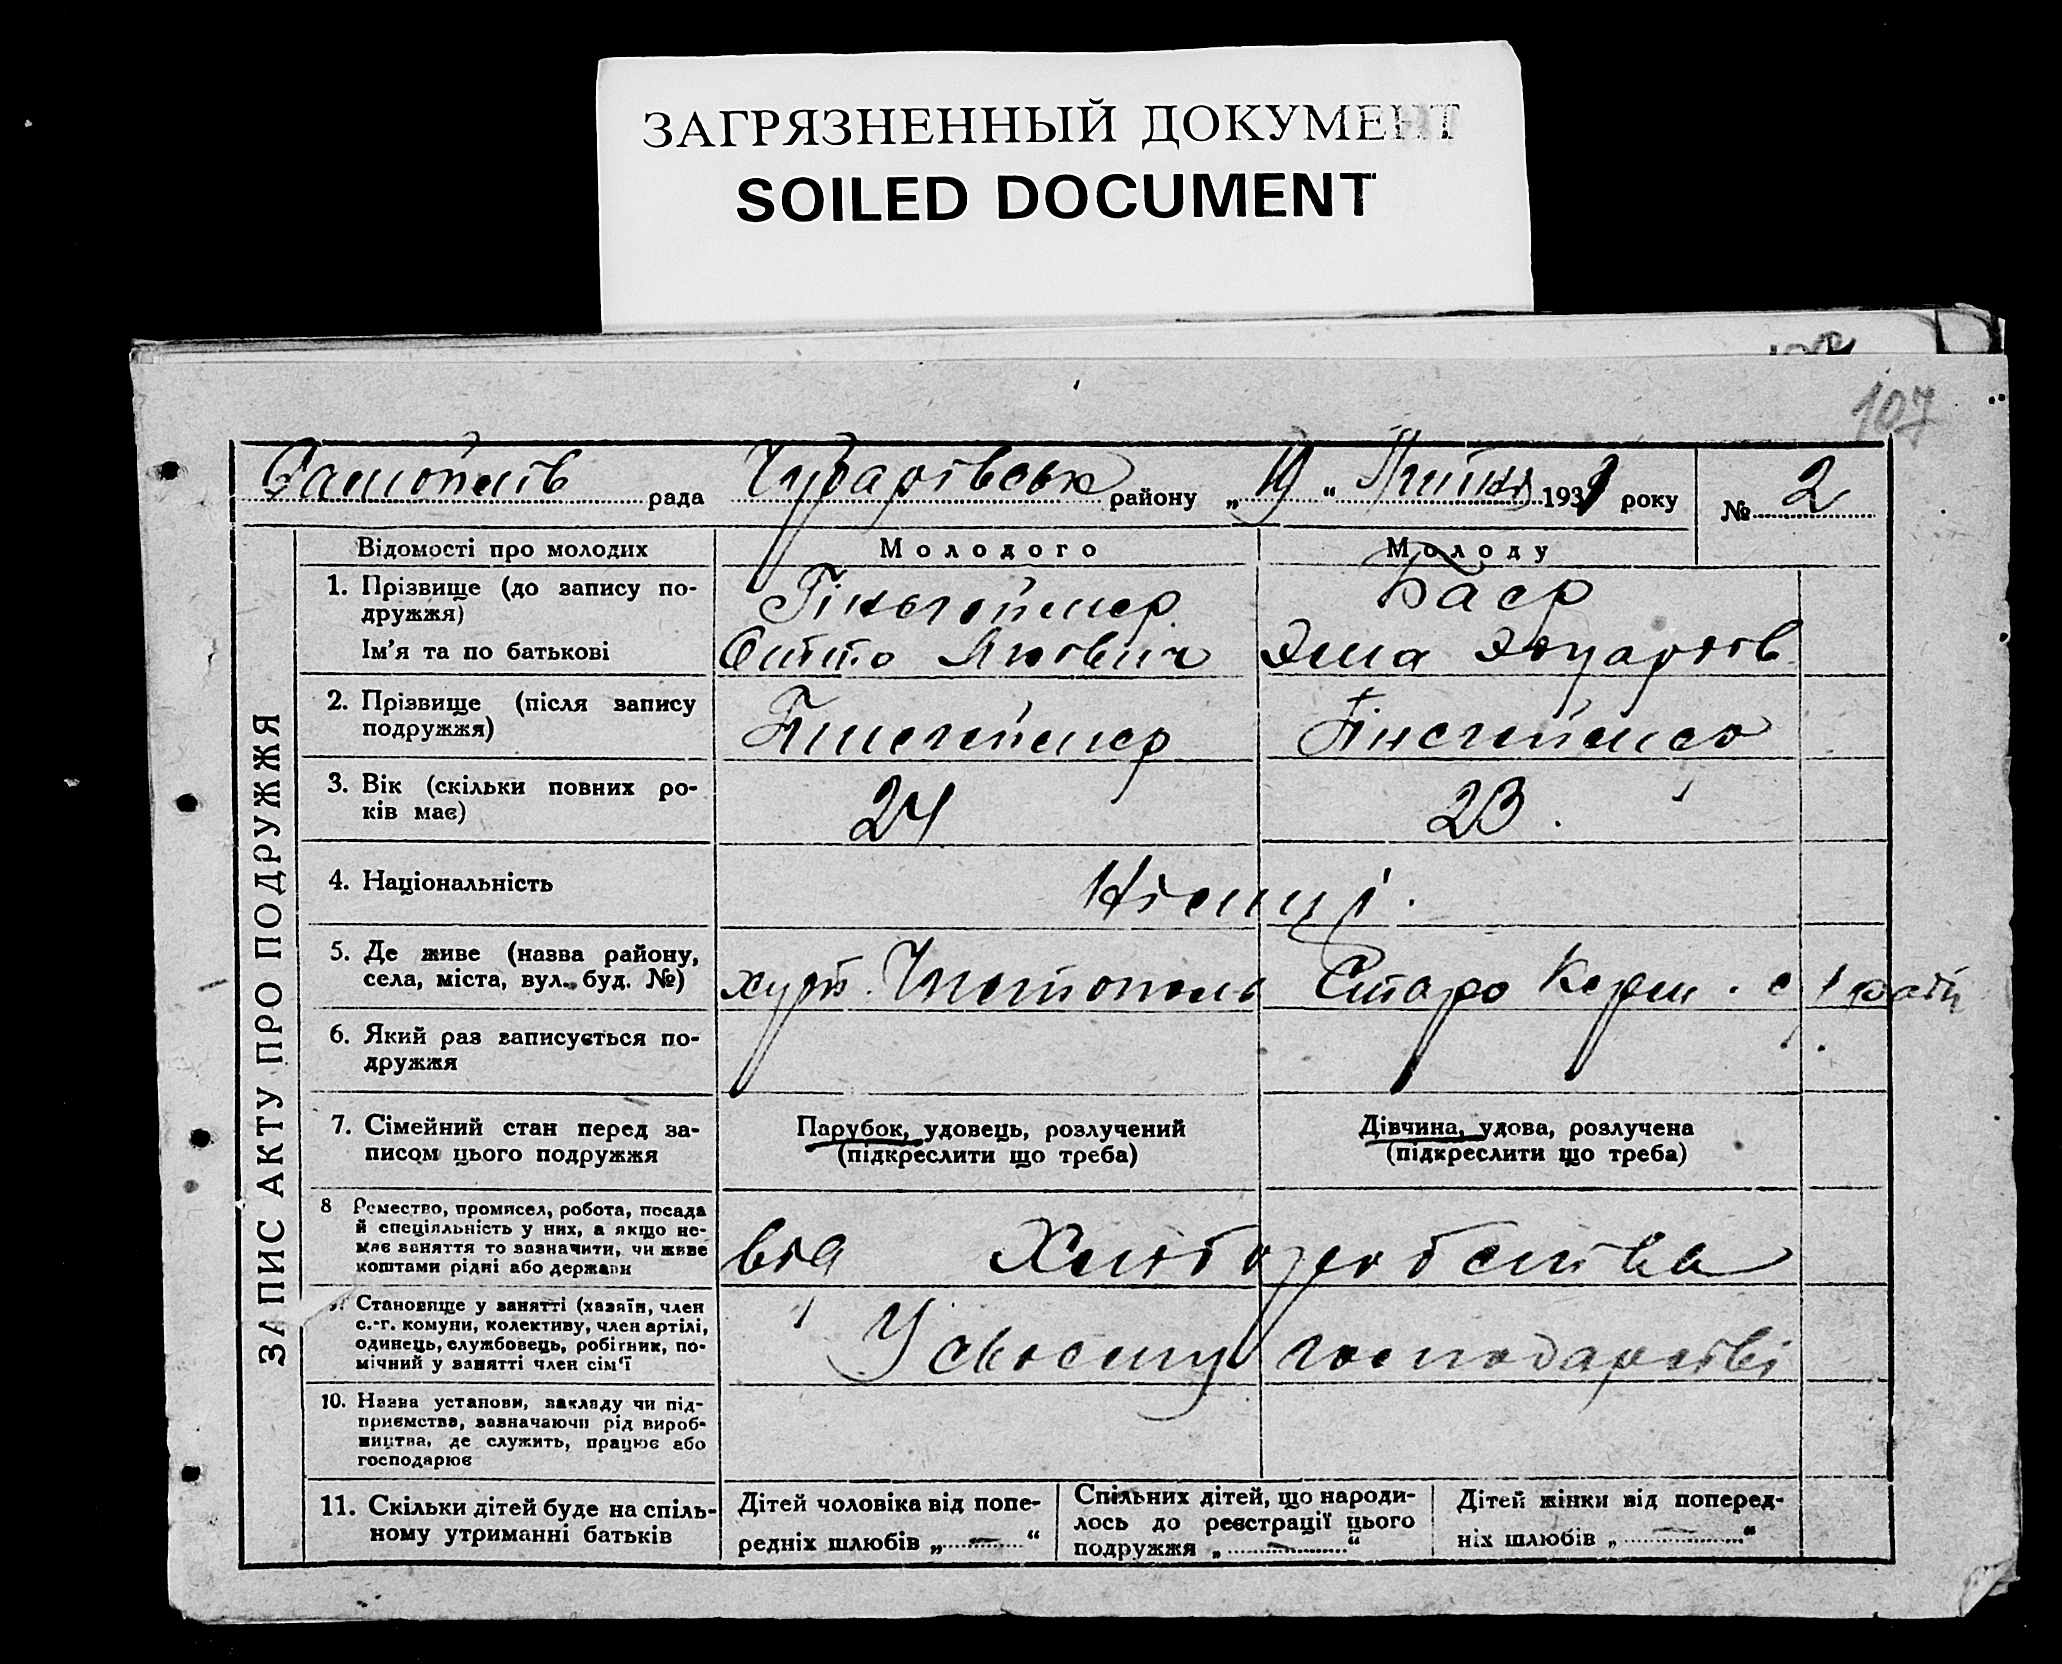 ЗАГРЯЗНЕННЫЙ ДОКУМЕНТ
SOILED DOCUMENT
107
рада Чубарівськ району „19“ 193 року № 2
ЗАПИС АКТУ ПРО ПОДРУЖЖЯ
Відомості про молодих Молодого Молоду
1. Прізвище (до запису по-
дружжя) Баєр
Ім'я та по батькові Отто Якович Эма
2. Прізвище (після запису
подружжя)
3. Вік (скільки повних ро-
ків має) 24 23.
4. Національність Німці.
5. Де живе (назва району,
села, міста, вул. буд. №) хут. Чистополь Старо
6. Який раз записується по-
дружжя
7. Сімейний стан перед за-
писом цього подружжя
Парубок, удовець, розлучений
(підкреслити що треба)
Дівчина, удова, розлучена
(підкреслити що треба)
8 Ремество, промисел, робота, посада
й спеціяльність у них, а якщо не-
має заняття то зазначити, чи живе
коштами рідні або держави
від Хліборобства
9. Становище у занятті (хазяїн, член
с.-г. комуни, колективу, член артілі,
одинець, службовець, робітник, по-
мічний у занятті член сім'ї
У своєму господарстві
10. Назва установи, закладу чи під-
приємства, зазначаючи рід вироб-
ництва, де служить, працює або
господарює
11. Скільки дітей буде на спіль-
ному утриманні батьків
Дітей чоловіка від попе-
редніх шлюбів „—“
Спільних дітей, що народи-
лось до реєстрації цього
подружжя „—“
Дітей жінки від поперед-
ніх шлюбів „—“